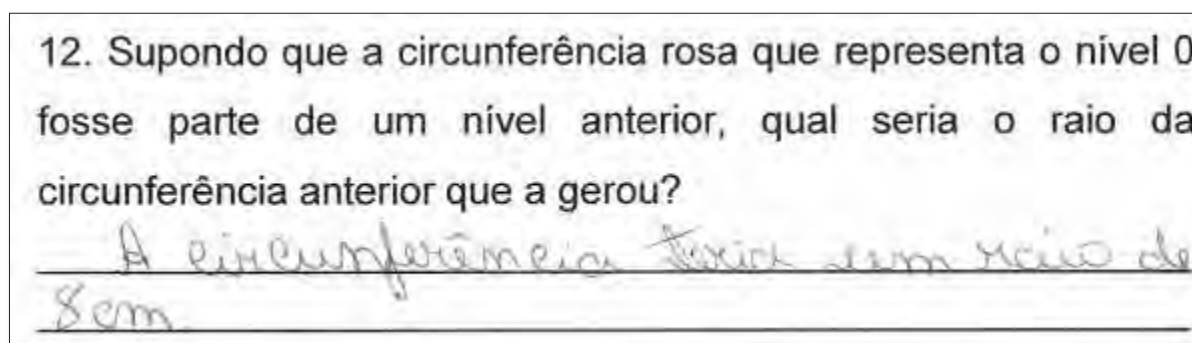 12. Supondo que a circunferência rosa que representa o nível 0
fosse parte de um nível anterior, qual seria o raio da
circunferência anterior que a gerou?
A circunferência teria um raio de
8cm